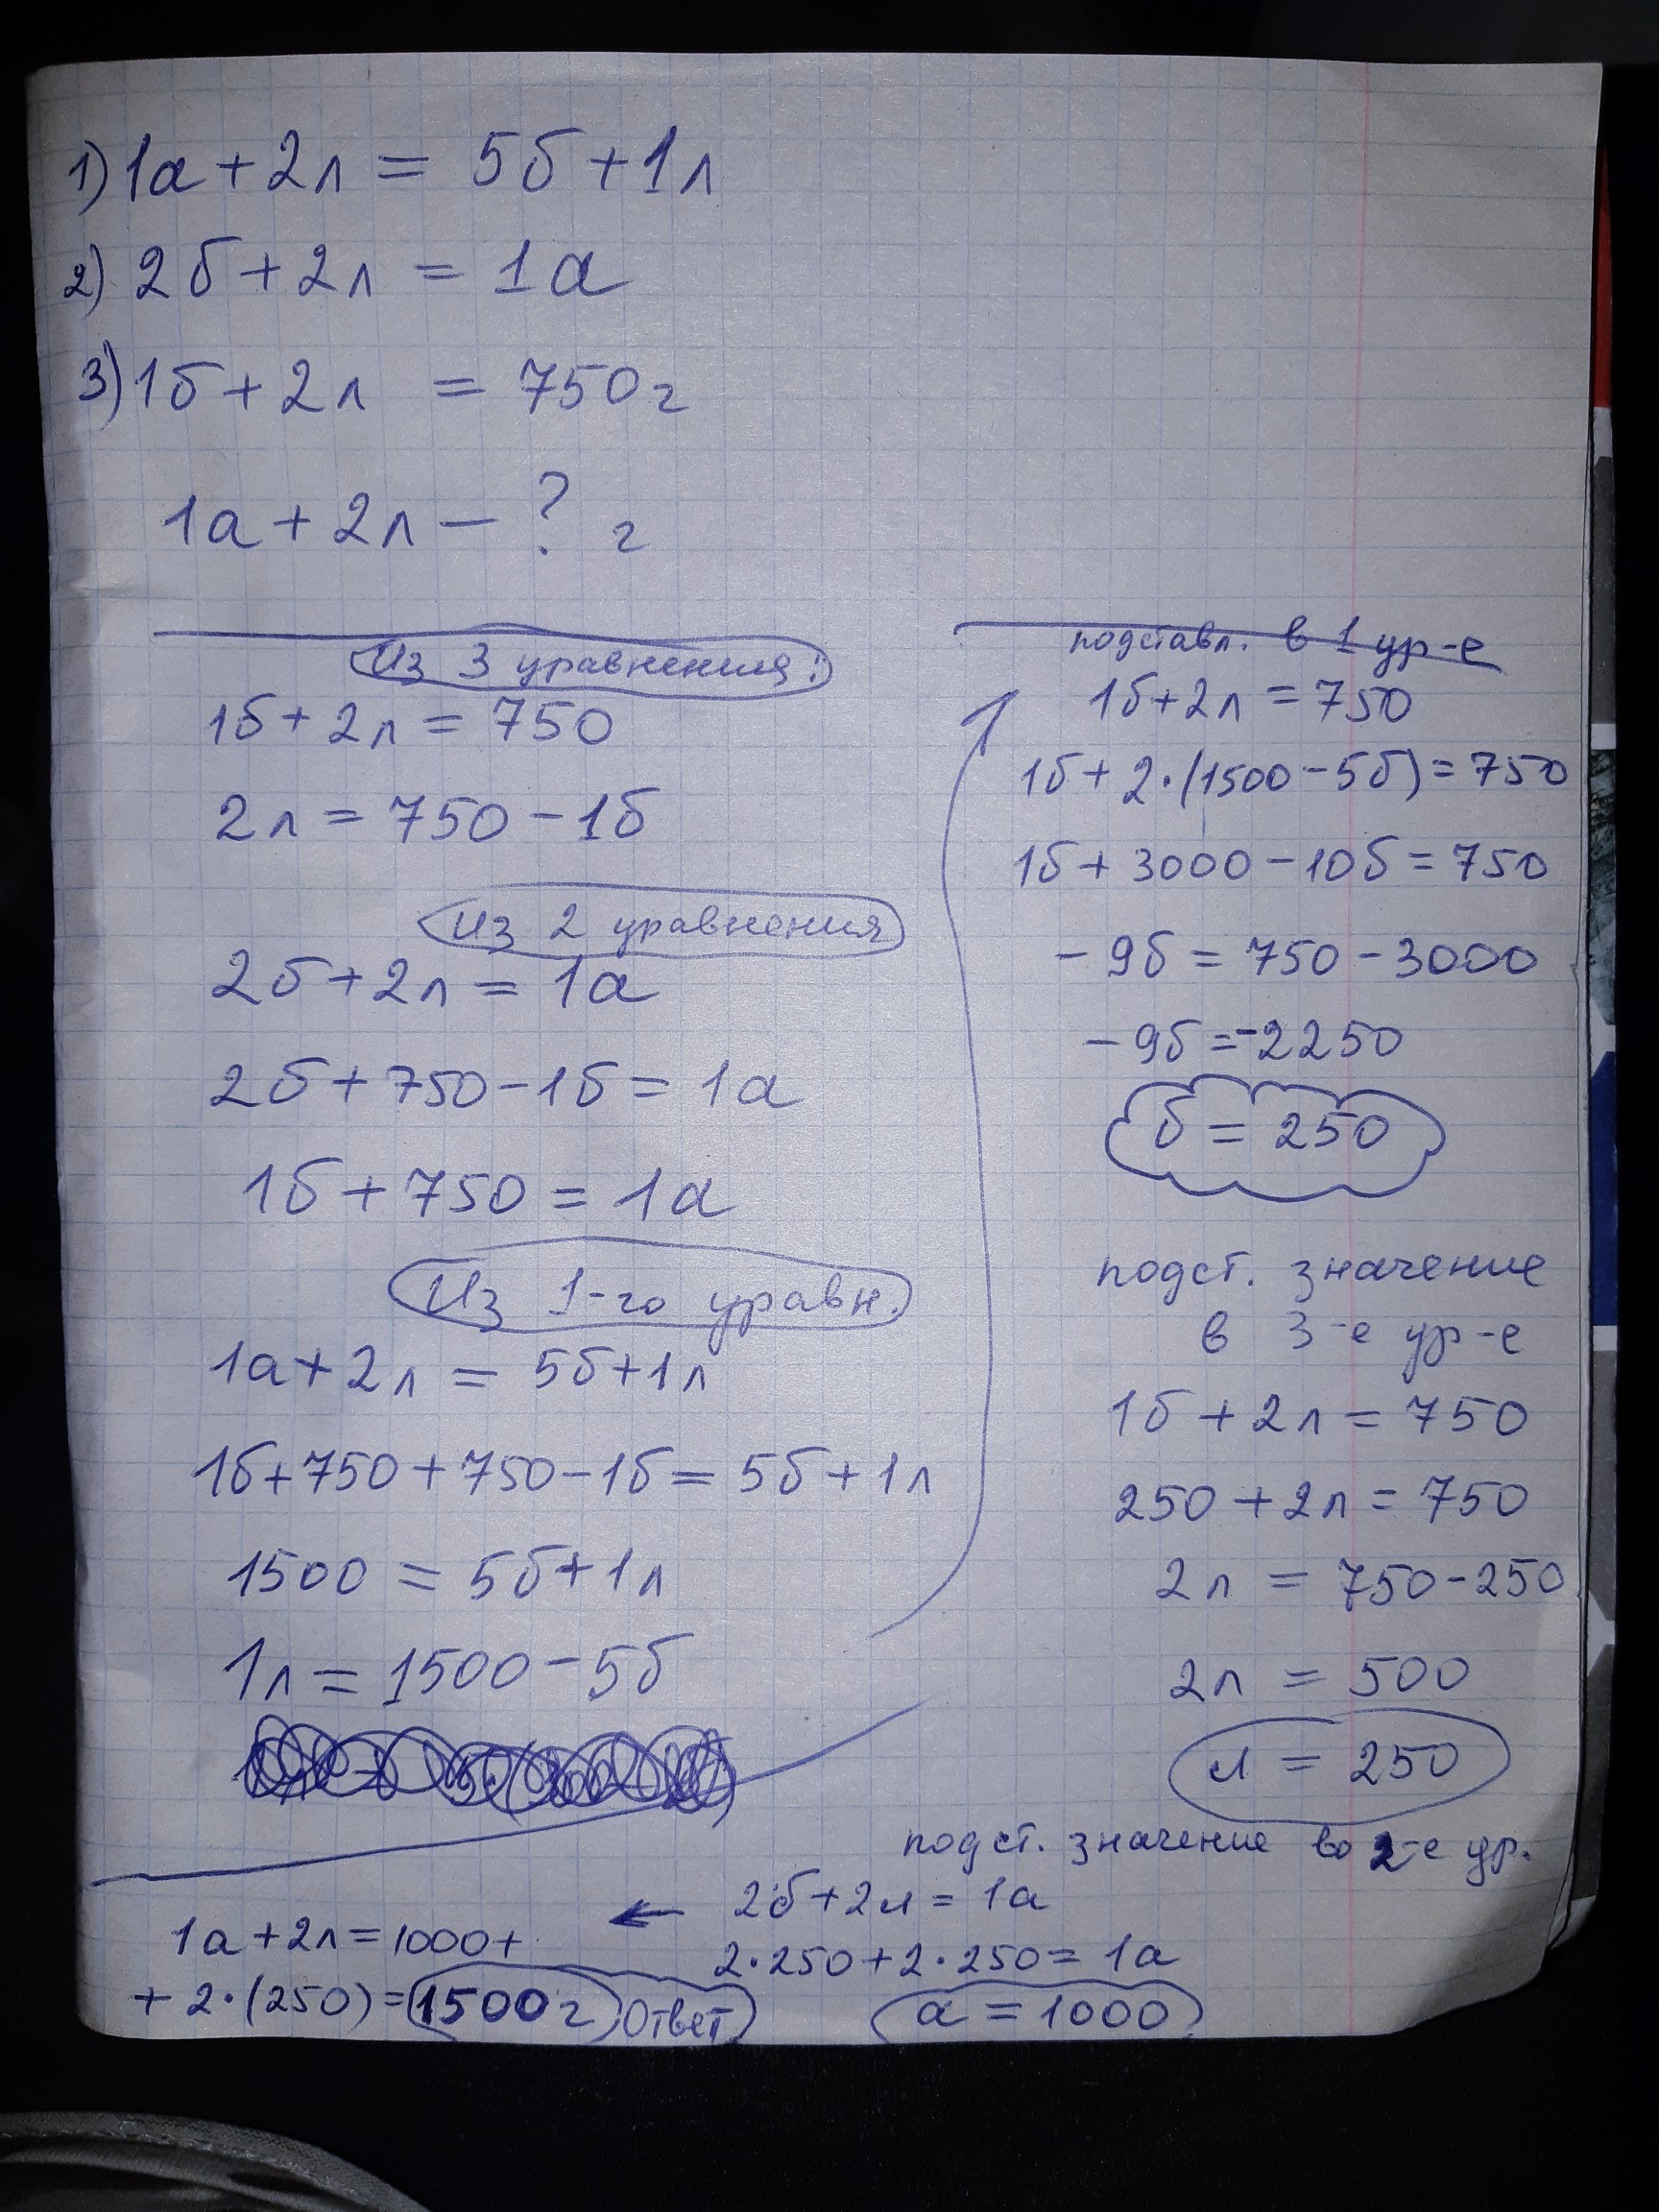 1) 1а + 2л = 5б + 1л
2) 2б + 2л = 1а
3) 1б + 2л = 750г
1а + 2л — ? г
Из 3 уравнения:
1б + 2л = 750
2л = 750 - 1б
Из 2 уравнения
2б + 2л = 1а
2б + 750 - 1б = 1а
1б + 750 = 1а
Из 1-го уравн.
1а + 2л = 5б + 1л
1б + 750 + 750 - 1б = 5б + 1л
1500 = 5б + 1л
1л = 1500 - 5б
подставл. в 1 ур-е
1б + 2л = 750
1б + 2·(1500 - 5б) = 750
1б + 3000 - 10б = 750
- 9б = 750 - 3000
- 9б = -2250
б = 250
подст. значение
в 3-е ур-е
1б + 2л = 750
250 + 2л = 750
2л = 750 - 250
2л = 500
л = 250
подст. значение во 2-е ур.
2б + 2л = 1а
2·250 + 2·250 = 1а
а = 1000
1а + 2л = 1000 +
+ 2·(250) = 1500г Ответ